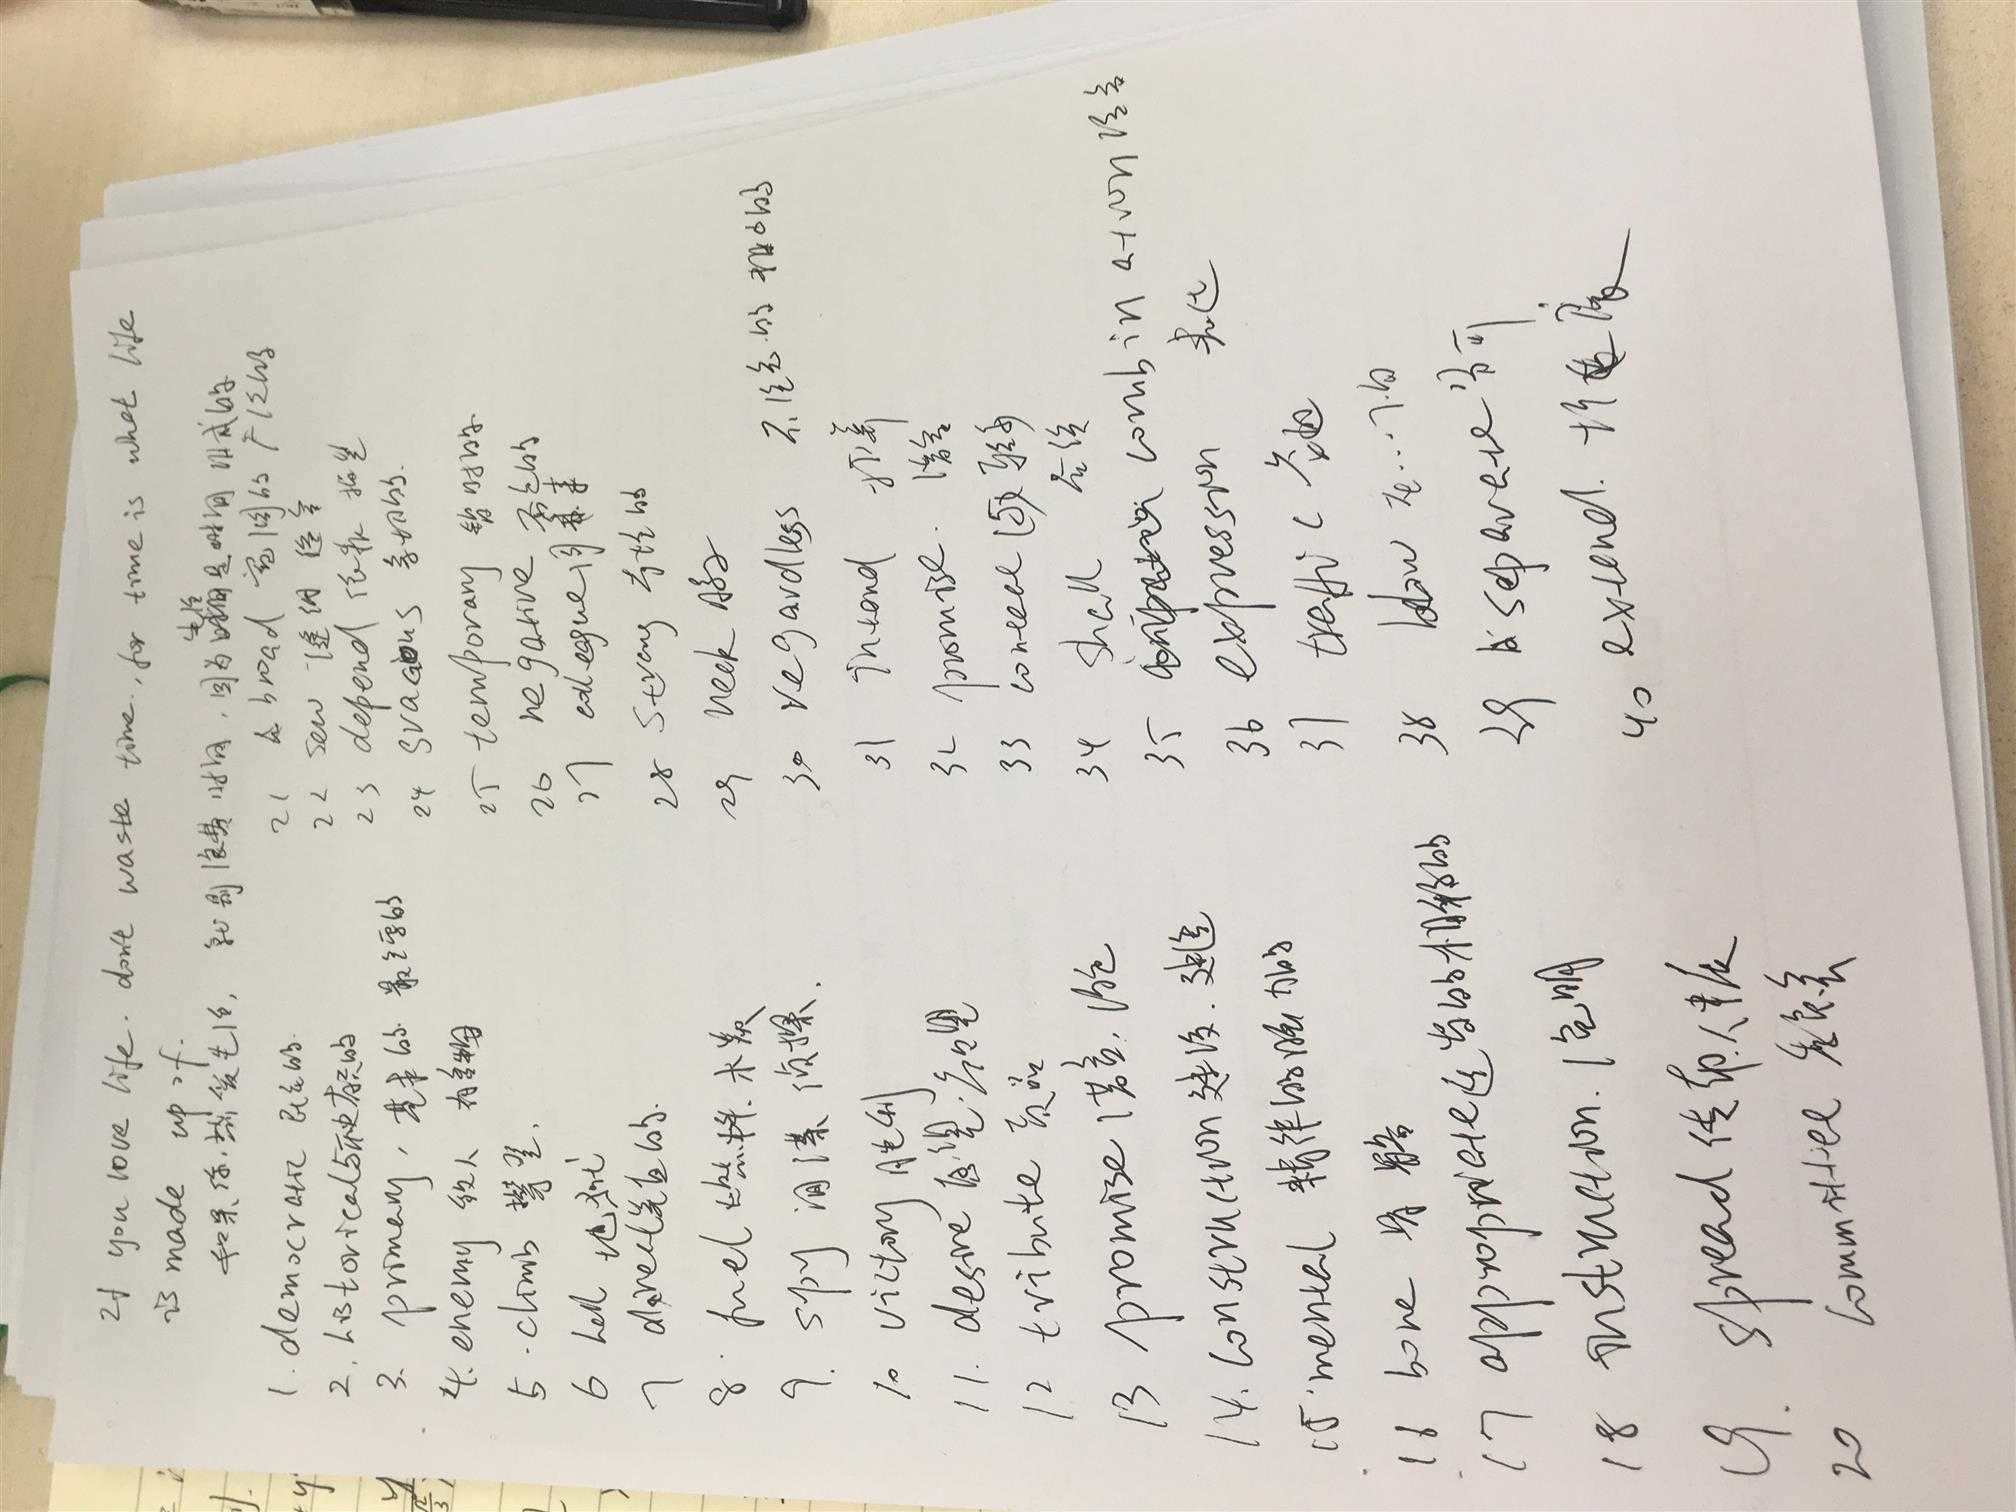 If you love life. don't waste time, for time is what life
is made up of.
如果你热爱生活, 就别浪费时间, 因为生活是时间组成的
1. democratic 民主的.
2. historical 与历史有关的
3. primary, 基本的. 最主要的
4. enemy 敌人
5. climb 攀登.
6 hall
7 direct 笔直的.
8. fuel 燃料.
9. spy 间谍 侦探.
10 victory 胜利
11. desire 渴望. 希望
12 tribute 贡品
13 promise 诺言.
14. construction 建设. 建造
15 mental 精神的
16 bone 骨 骨骼
17 appropriate 适当的 相称的
18 instruction. 说明
19. spread 传布.
20 committee 委员会
21 abroad
22 sew 缝纫
23 depend 依靠
24 gracious 亲切的.
25 temporary 暂时的
26 negative 否定的
27 colleague 同事
28 strong
29 weak
30 regardless 不注意的
31 intend 打算
32 promise. 诺言
33
34 shall 应该
35 combination 联合
36 expression 表达
37 traffic 交通
38 below 在...下的
39 separate
40 extend.